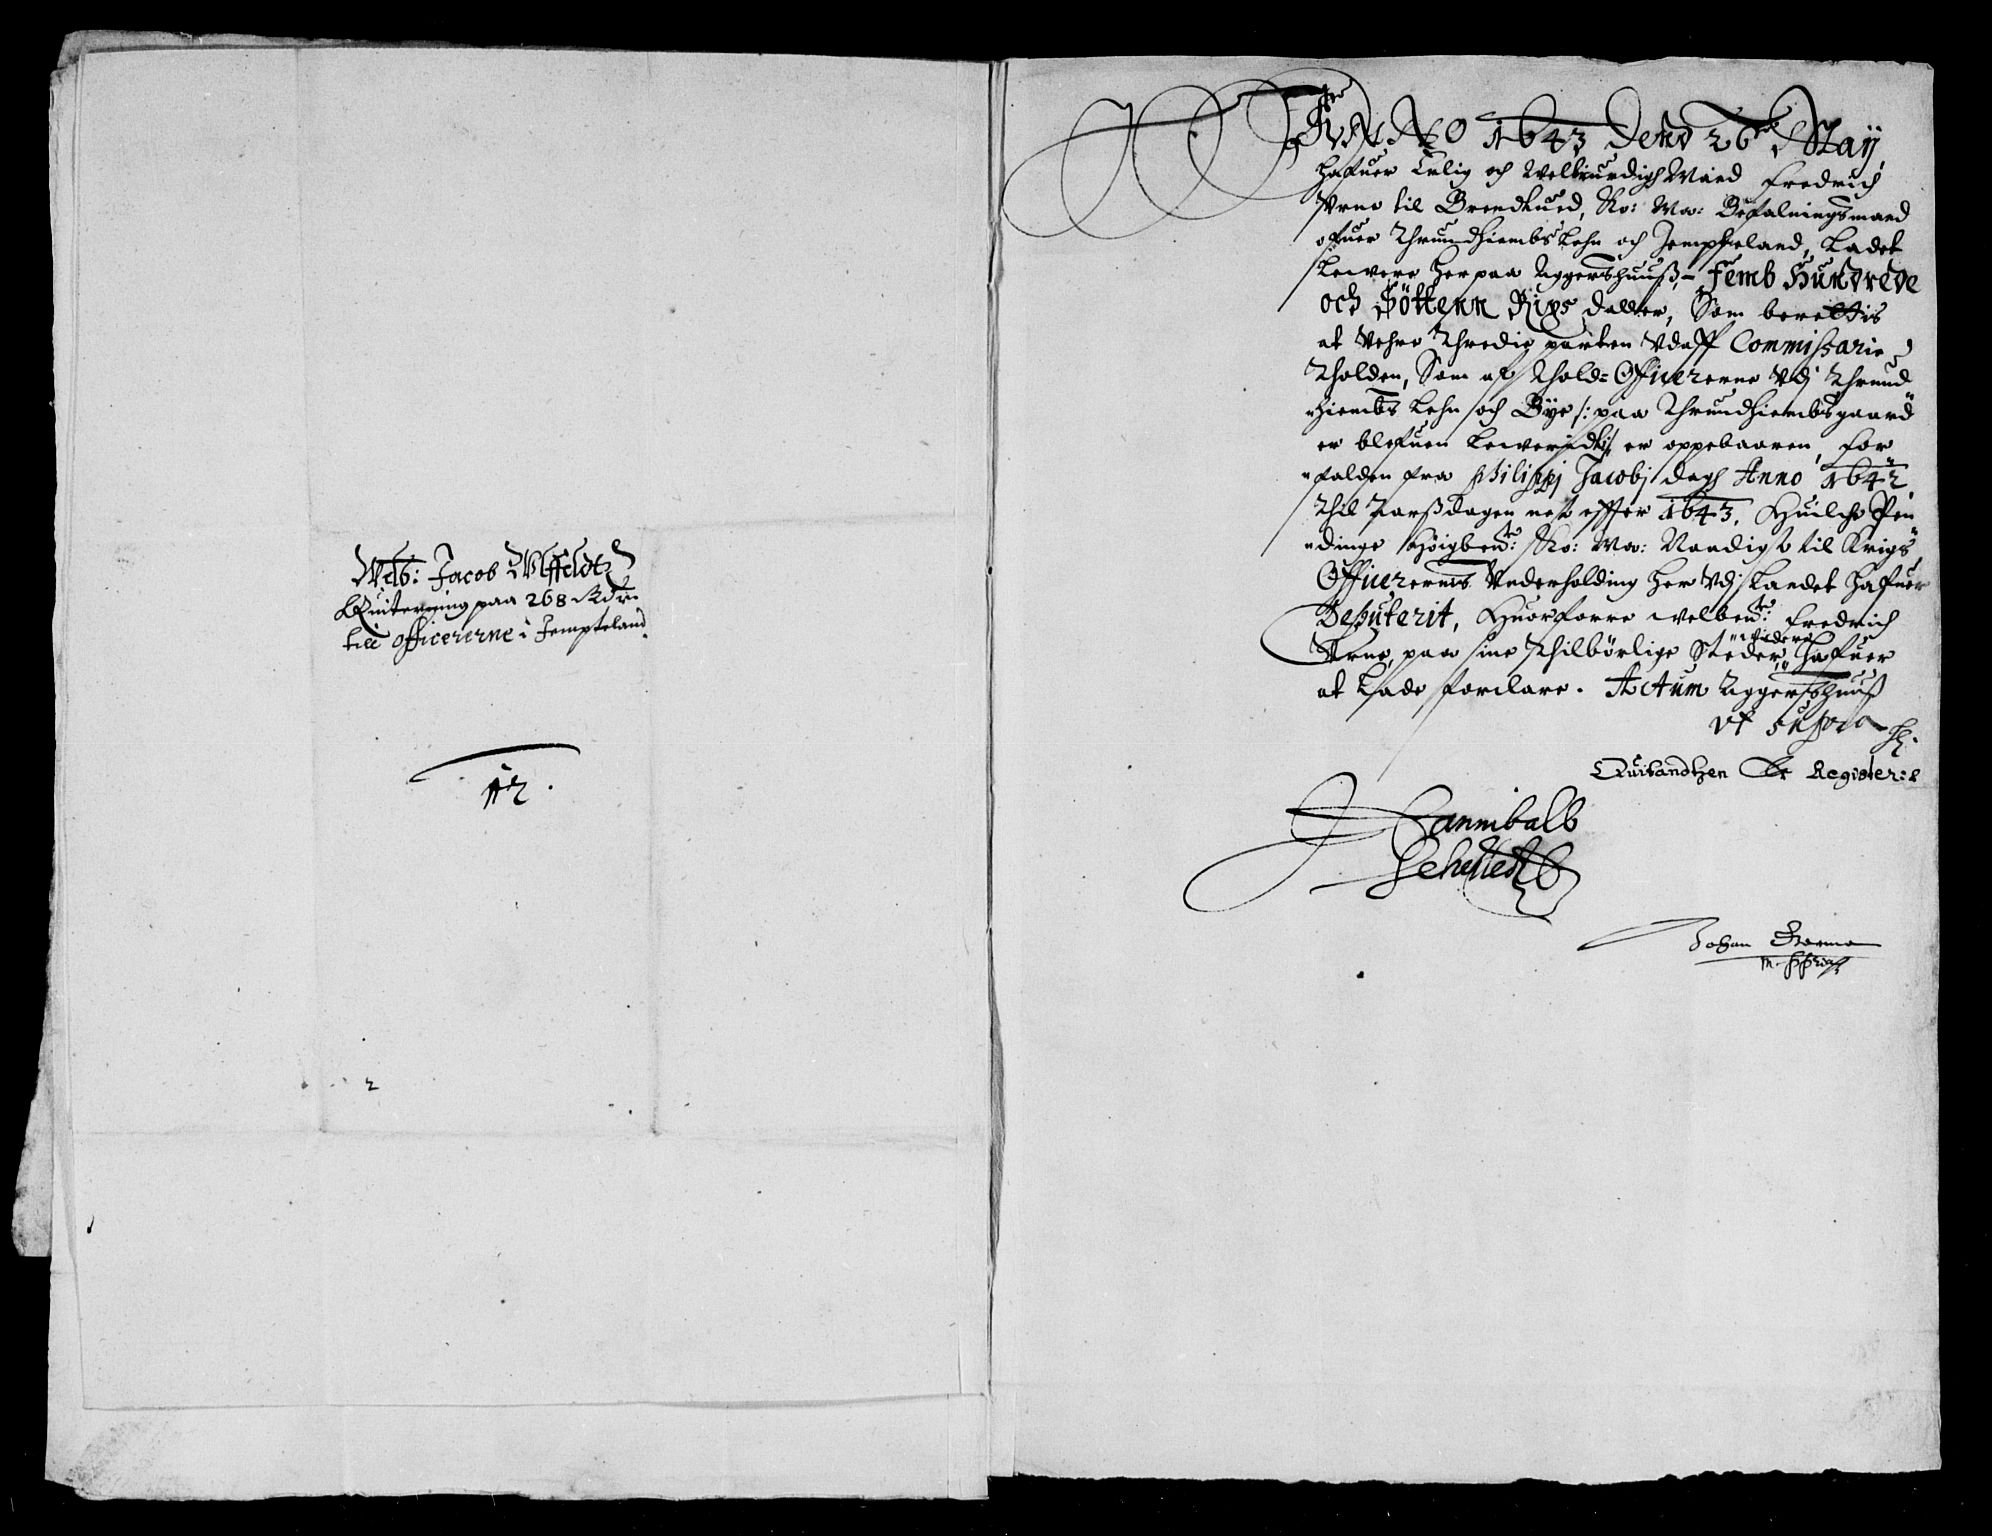 Welb: Jacob Ulffeldtz
Quitering paa 268 Rdr
till officererne i Jempteland
12.
2
Anno 1643 Denn 26 May
hafuer Erlig och Welbiurdigh Mand Fredrich
Urne til Brendtued, Ko: Ma: Befalningsmand
ofuer Thrundhiembs Lehn och Jempteland, Ladet
Leuere her paa Aggershuuß, Femb Hundrede
och Söttenn Rigs daller, Som berettis
at Vehre Thredie parten Udaff Commissarie
Tholden, Som af Told-Officererne Udj Thrund
hiembs Lehn och Bye /: paa Thrundhiembsgaard
er blefuen Leueridt :/ er oppebaaren, for
falden fra Philippj Jacobj dagh Anno 1642
Thil Aarßdagen nest effter 1643. Huilche Pen
dinge Höigbente: Ko: Ma: Naadigst til Krigs
Officerernis Underholding her Udj Landet hafuer
Deputerit, Huorforre welbente: Fredrich
Urne, paa sine Thilbörlige Steder, videre hafuer
at Lade forclare. Actum Aggershuuß
ut supra
Quitandtzen Er Register:
Hanniball
Sehestedt
Johan
m. ppria